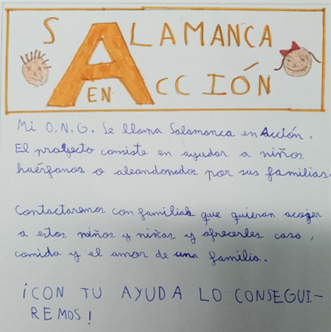 SALAMANCA
EN ACCIÓN
Mi O.N.G. se llama Salamanca en Acción.
El proyecto consiste en ayudar a niños
huérfanos o abandonados por sus familias.
Contactaremos con familias que quieran acoger
a estos niños y niñas y ofrecerles casa,
comida y el amor de una familia.
¡CON TU AYUDA LO CONSEGUI-
REMOS!